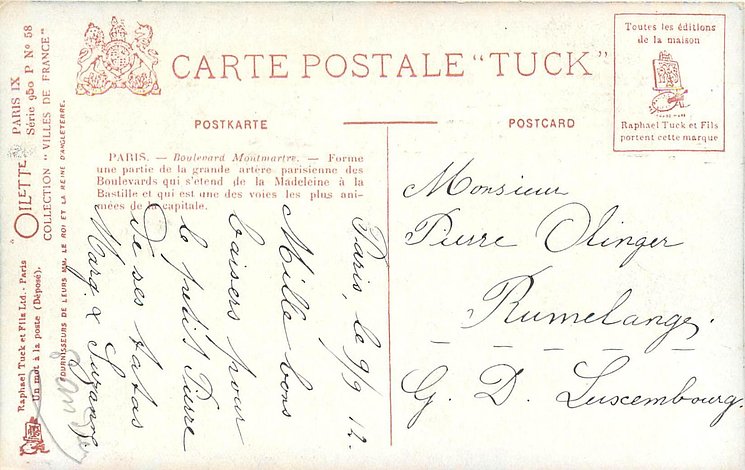 CARTE POSTALE "TUCK"
POSTKARTE
POSTCARD
Toutes les éditions
de la maison
Raphael Tuck et Fils
portent cette marque
PARIS. — Boulevard Montmartre. — Forme
une partie de la grande artère parisienne des
Boulevards qui s'etend de la Madeleine à la
Bastille et qui est une des voies les plus ani-
mées de la capitale.
Paris, le 9/9 12.
Mille bons
baisers pour
le petit Pierre
de ses tatas
Marg. & Suzanne
Monsieur
Pierre Olinger
Rumelange.
G. D. Luxembourg.
"OILETTE"
PARIS IX
Série 950 P Nº 58
COLLECTION "VILLES DE FRANCE"
Raphael Tuck et Fils Ltd. - Paris
Un mot à la poste (Déposé).
FOURNISSEURS DE LEURS MM. LE ROI ET LA REINE D'ANGLETERRE.